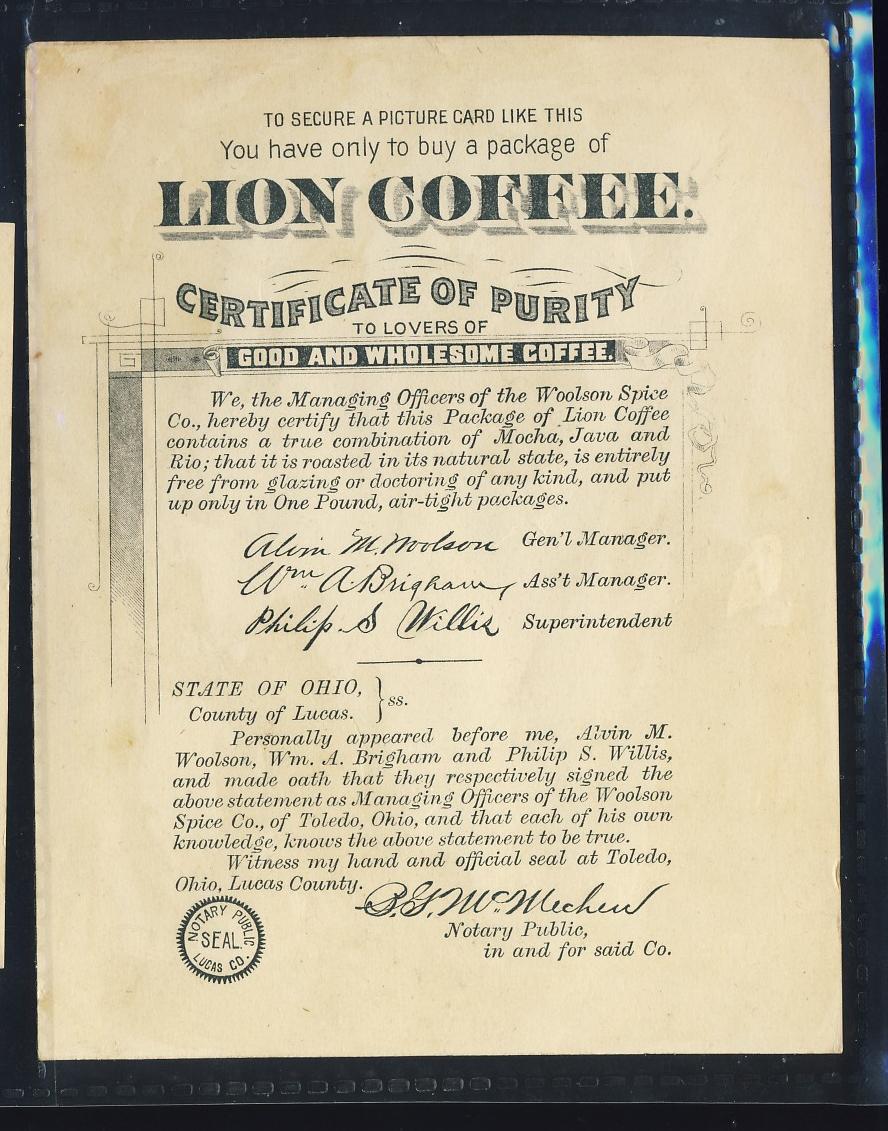 TO SECURE A PICTURE CARD LIKE THIS
You have only to buy a package of
LION COFFEE.
CERTIFICATE OF PURITY
TO LOVERS OF
GOOD AND WHOLESOME COFFEE.
We, the Managing Officers of the Woolson Spice
Co., hereby certify that this Package of Lion Coffee
contains a true combination of Mocha, Java and
Rio; that it is roasted in its natural state, is entirely
free from glazing or doctoring of any kind, and put
up only in One Pound, air-tight packages.
Alvin M. Woolson Gen'l Manager.
Wm. A. Brigham, Ass't Manager.
Philip S Willis Superintendent
STATE OF OHIO, } ss.
County of Lucas.
Personally appeared before me, Alvin M.
Woolson, Wm. A. Brigham and Philip S. Willis,
and made oath that they respectively signed the
above statement as Managing Officers of the Woolson
Spice Co., of Toledo, Ohio, and that each of his own
knowledge, knows the above statement to be true.
Witness my hand and official seal at Toledo,
Ohio, Lucas County.
B. G. McMechen
Notary Public,
in and for said Co.
NOTARY PUBLIC
SEAL.
LUCAS CO.